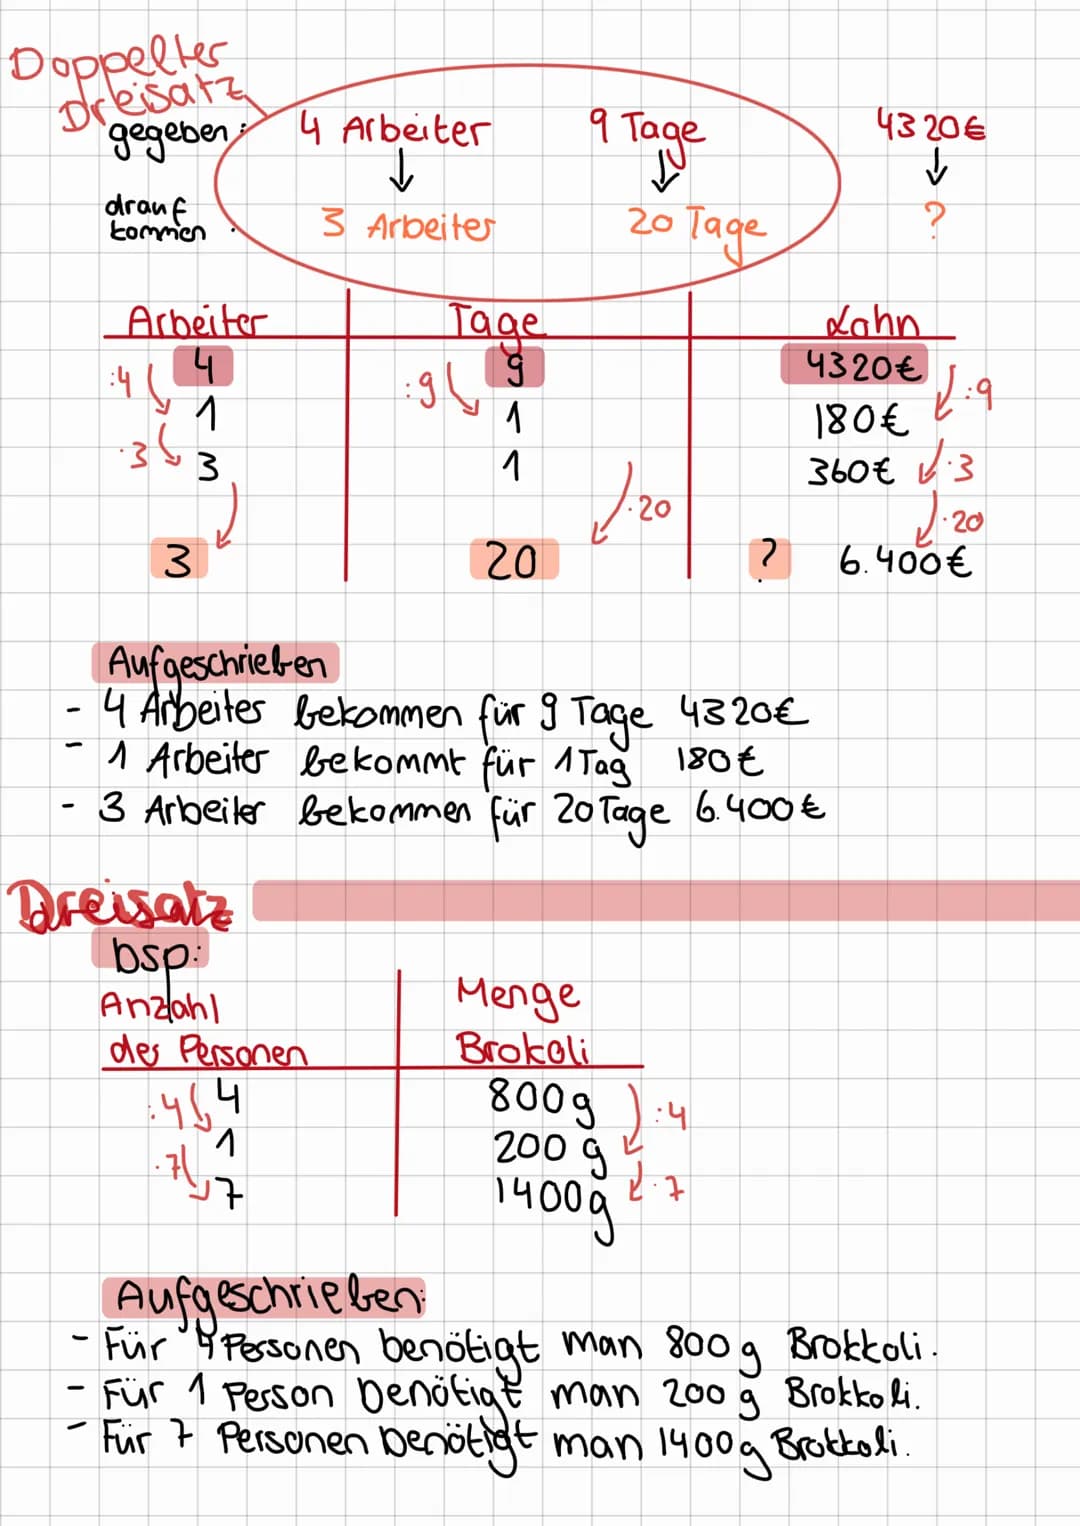 Doppelter
Dreisatz
gegeben: 4 Arbeiter 9 Tage 4320€
↓ ↓ ↓
drauf
kommen: 3 Arbeiter 20 Tage ?
Arbeiter Tage Lohn
4 9 4320€
:4 :9 :9
1 1 180€
·3 ·3
3 1 360€
·20 ·20
3 20 ? 6.400€
Aufgeschrieben
- 4 Arbeiter bekommen für 9 Tage 4320€
- 1 Arbeiter bekommt für 1 Tag 180€
- 3 Arbeiter bekommen für 20 Tage 6.400€
Dreisatz
bsp:
Anzahl Menge
der Personen Brokoli
4 800g
:4 :4
1 200 g
·7 ·7
7 1400g
Aufgeschrieben:
- Für 4 Personen benötigt man 800g Brokkoli.
- Für 1 Person benötigt man 200 g Brokkoli.
- Für 7 Personen benötigt man 1400g Brokkoli.